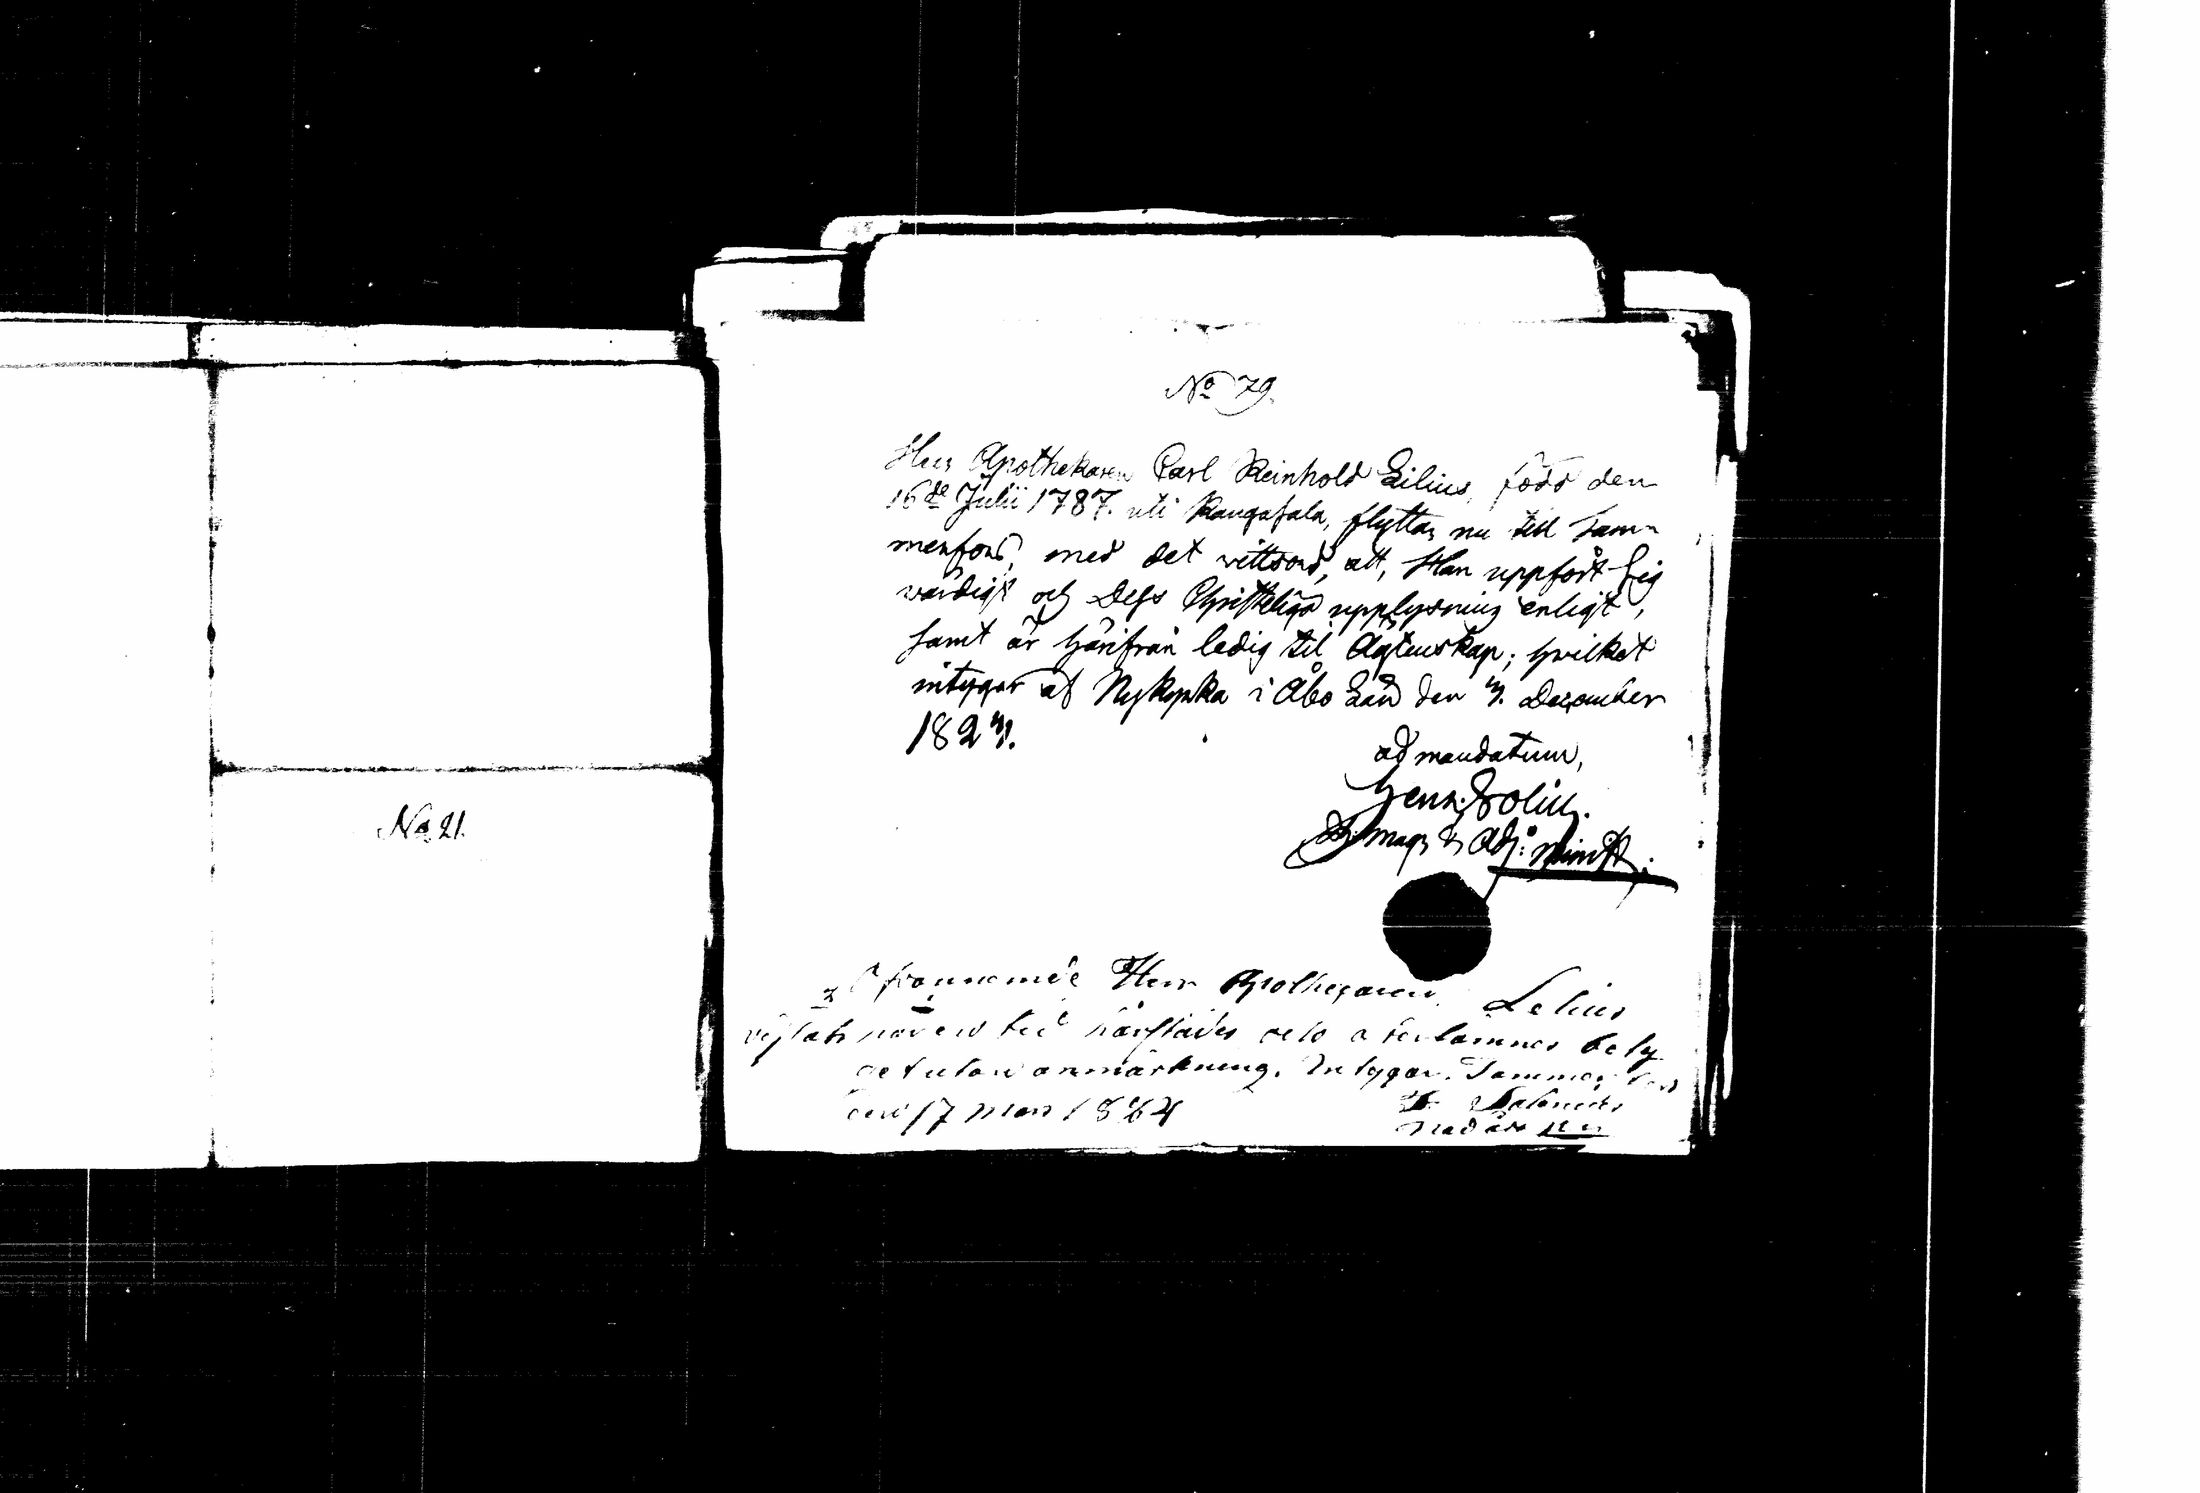 No 21.
No 79.
Herr Apothekaren Carl Reinhold Lilius, född den
16de Julii 1787. uti Kangasala, flyttar nu till Tam-
merfors, med det wittsord, att, Han uppfört sig
wärdigt och Dess Christeliga upplysning enligt,
samt är härifrån ledig til Ägtenskap; hvilket
intygar af Nykyrka i Åbo Län den 3. December
1823.
ad mandatum,
Henr. Polin.
Mag & Adj: Minist:
Ofvannemde Herr Apothegaren Lelius
vistats någen tid härstädes och aterlämnas bety
get utan anmärkning. Intygar. Tammerfors
den 17 Mars 1824